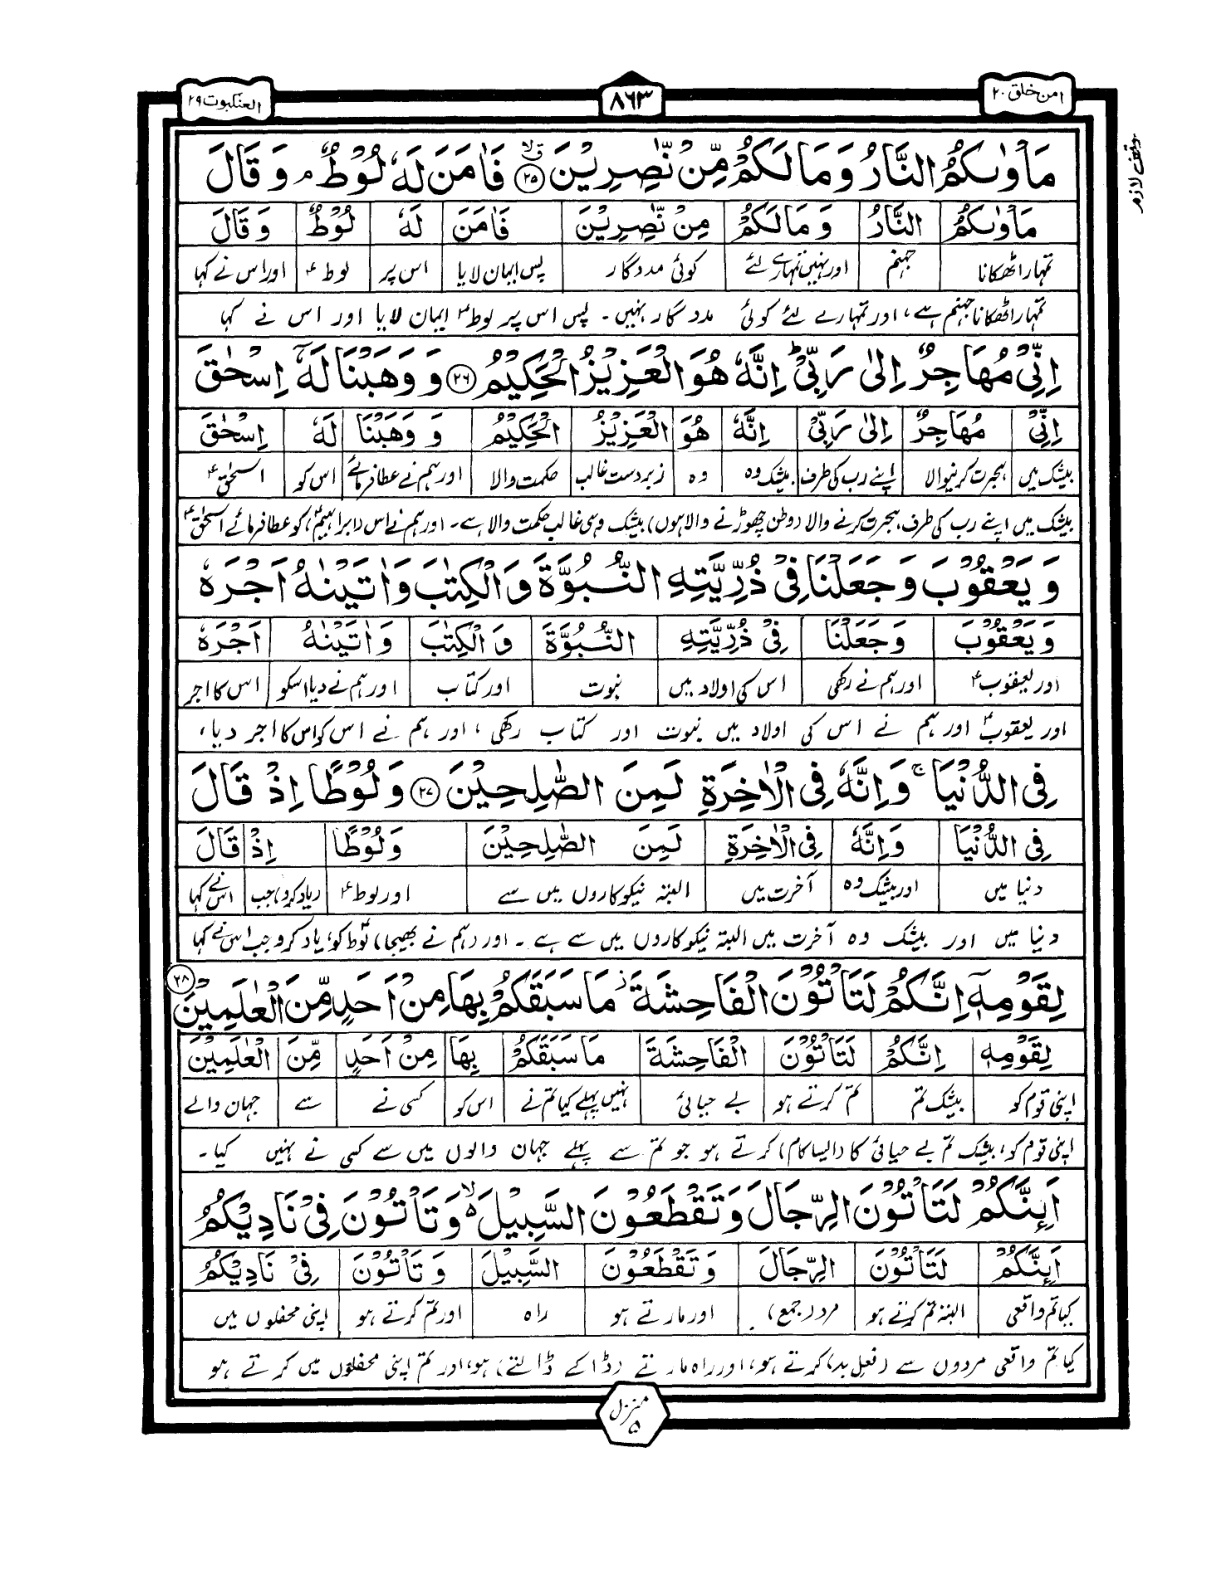 امن خلق ۲۰
۸۶۳
العنکبوت ۲۹
وقف لازم
مَاْوٰىكُمُ النَّارُ وَمَا لَكُمْ مِّنْ نّٰصِرِيْنَ ۲۵ فَاٰمَنَ لَهٗ لُوْطٌ م وَقَالَ
مَاْوٰىكُمُ النَّارُ وَمَا لَكُمْ مِنْ نّٰصِرِيْنَ فَاٰمَنَ لَهٗ لُوْطٌ وَقَالَ
تمہارا ٹھکانا جہنم اور نہیں تمہارے لئے کوئی مددگار پس ایمان لایا اس پر لوط ؑ اور اس نے کہا
تمہارا ٹھکانا جہنم ہے، اور تمہارے لئے کوئی مددگار نہیں۔ پس اس پر لوط ؑ ایمان لایا اور اس نے کہا
اِنِّىْ مُهَاجِرٌ اِلٰى رَبِّىْ ؕ اِنَّهٗ هُوَ الْعَزِيْزُ الْحَكِيْمُ ۲۶ وَ وَهَبْنَا لَهٗۤ اِسْحٰقَ
اِنِّىْ مُهَاجِرٌ اِلٰى رَبِّىْ اِنَّهٗ هُوَ الْعَزِيْزُ الْحَكِيْمُ وَ وَهَبْنَا لَهٗ اِسْحٰقَ
بیشک میں ہجرت کرنیوالا اپنے رب کی طرف بیشک وہ وہ زبردست غالب حکمت والا اور ہم نے عطا فرمائے اس کو اسحٰق ؑ
بیشک میں اپنے رب کی طرف ہجرت کرنے والا (وطن چھوڑنے والا ہوں) بیشک وہی غالب حکمت والا ہے۔ اور ہم نے اس (ابراہیم ؑ) کو عطا فرمائے اسحٰق ؑ
وَ يَعْقُوْبَ وَجَعَلْنَا فِىْ ذُرِّيَّتِهِ النُّبُوَّةَ وَالْكِتٰبَ وَاٰتَيْنٰهُ اَجْرَهٗ
وَ يَعْقُوْبَ وَجَعَلْنَا فِىْ ذُرِّيَّتِهِ النُّبُوَّةَ وَالْكِتٰبَ وَاٰتَيْنٰهُ اَجْرَهٗ
اور یعقوب ؑ اور ہم نے رکھی اس کی اولاد میں نبوت اور کتاب اور ہم نے دیا اسکو اس کا اجر
اور یعقوب ؑ اور ہم نے اس کی اولاد میں نبوت اور کتاب رکھی، اور ہم نے اس کو اس کا اجر دیا،
فِى الدُّنْيَا ۚ وَاِنَّهٗ فِى الْاٰخِرَةِ لَمِنَ الصّٰلِحِيْنَ ۲۷ وَلُوْطًا اِذْ قَالَ
فِى الدُّنْيَا وَاِنَّهٗ فِى الْاٰخِرَةِ لَمِنَ الصّٰلِحِيْنَ وَلُوْطًا اِذْ قَالَ
دنیا میں اور بیشک وہ آخرت میں البتہ نیکوکاروں میں سے اور لوط ؑ (یاد کرو) جب اس نے کہا
دنیا میں اور بیشک وہ آخرت میں البتہ نیکوکاروں میں سے ہے۔ اور (ہم نے بھیجا) لوط ؑ کو، یاد کرو جب اس نے کہا
لِقَوْمِهٖۤ اِنَّكُمْ لَتَاْتُوْنَ الْفَاحِشَةَ ز مَا سَبَقَكُمْ بِهَا مِنْ اَحَدٍ مِّنَ الْعٰلَمِيْنَ ۲۸
لِقَوْمِهٖ اِنَّكُمْ لَتَاْتُوْنَ الْفَاحِشَةَ مَا سَبَقَكُمْ بِهَا مِنْ اَحَدٍ مِّنَ الْعٰلَمِيْنَ
اپنی قوم کو بیشک تم تم کرتے ہو بے حیائی نہیں پہلے کیا تم نے اس کو کسی نے سے جہان والے
اپنی قوم کو، بیشک تم بے حیائی کا (ایسا کام) کرتے ہو جو تم سے پہلے جہان والوں میں سے کسی نے نہیں کیا۔
اَىِٕنَّكُمْ لَتَاْتُوْنَ الرِّجَالَ وَتَقْطَعُوْنَ السَّبِيْلَ ۙ۬ وَتَاْتُوْنَ فِىْ نَادِيْكُمُ
اَىِٕنَّكُمْ لَتَاْتُوْنَ الرِّجَالَ وَتَقْطَعُوْنَ السَّبِيْلَ وَتَاْتُوْنَ فِىْ نَادِيْكُمُ
کیا تم واقعی البتہ تم کرتے ہو مرد (جمع) اور مارتے ہو راہ اور تم کرتے ہو اپنی محفلوں میں
کیا تم واقعی مردوں سے (فعل بد) کرتے ہو، اور راہ مارتے (ڈاکے ڈالتے) ہو، اور تم اپنی محفلوں میں کرتے ہو
منزل ۵